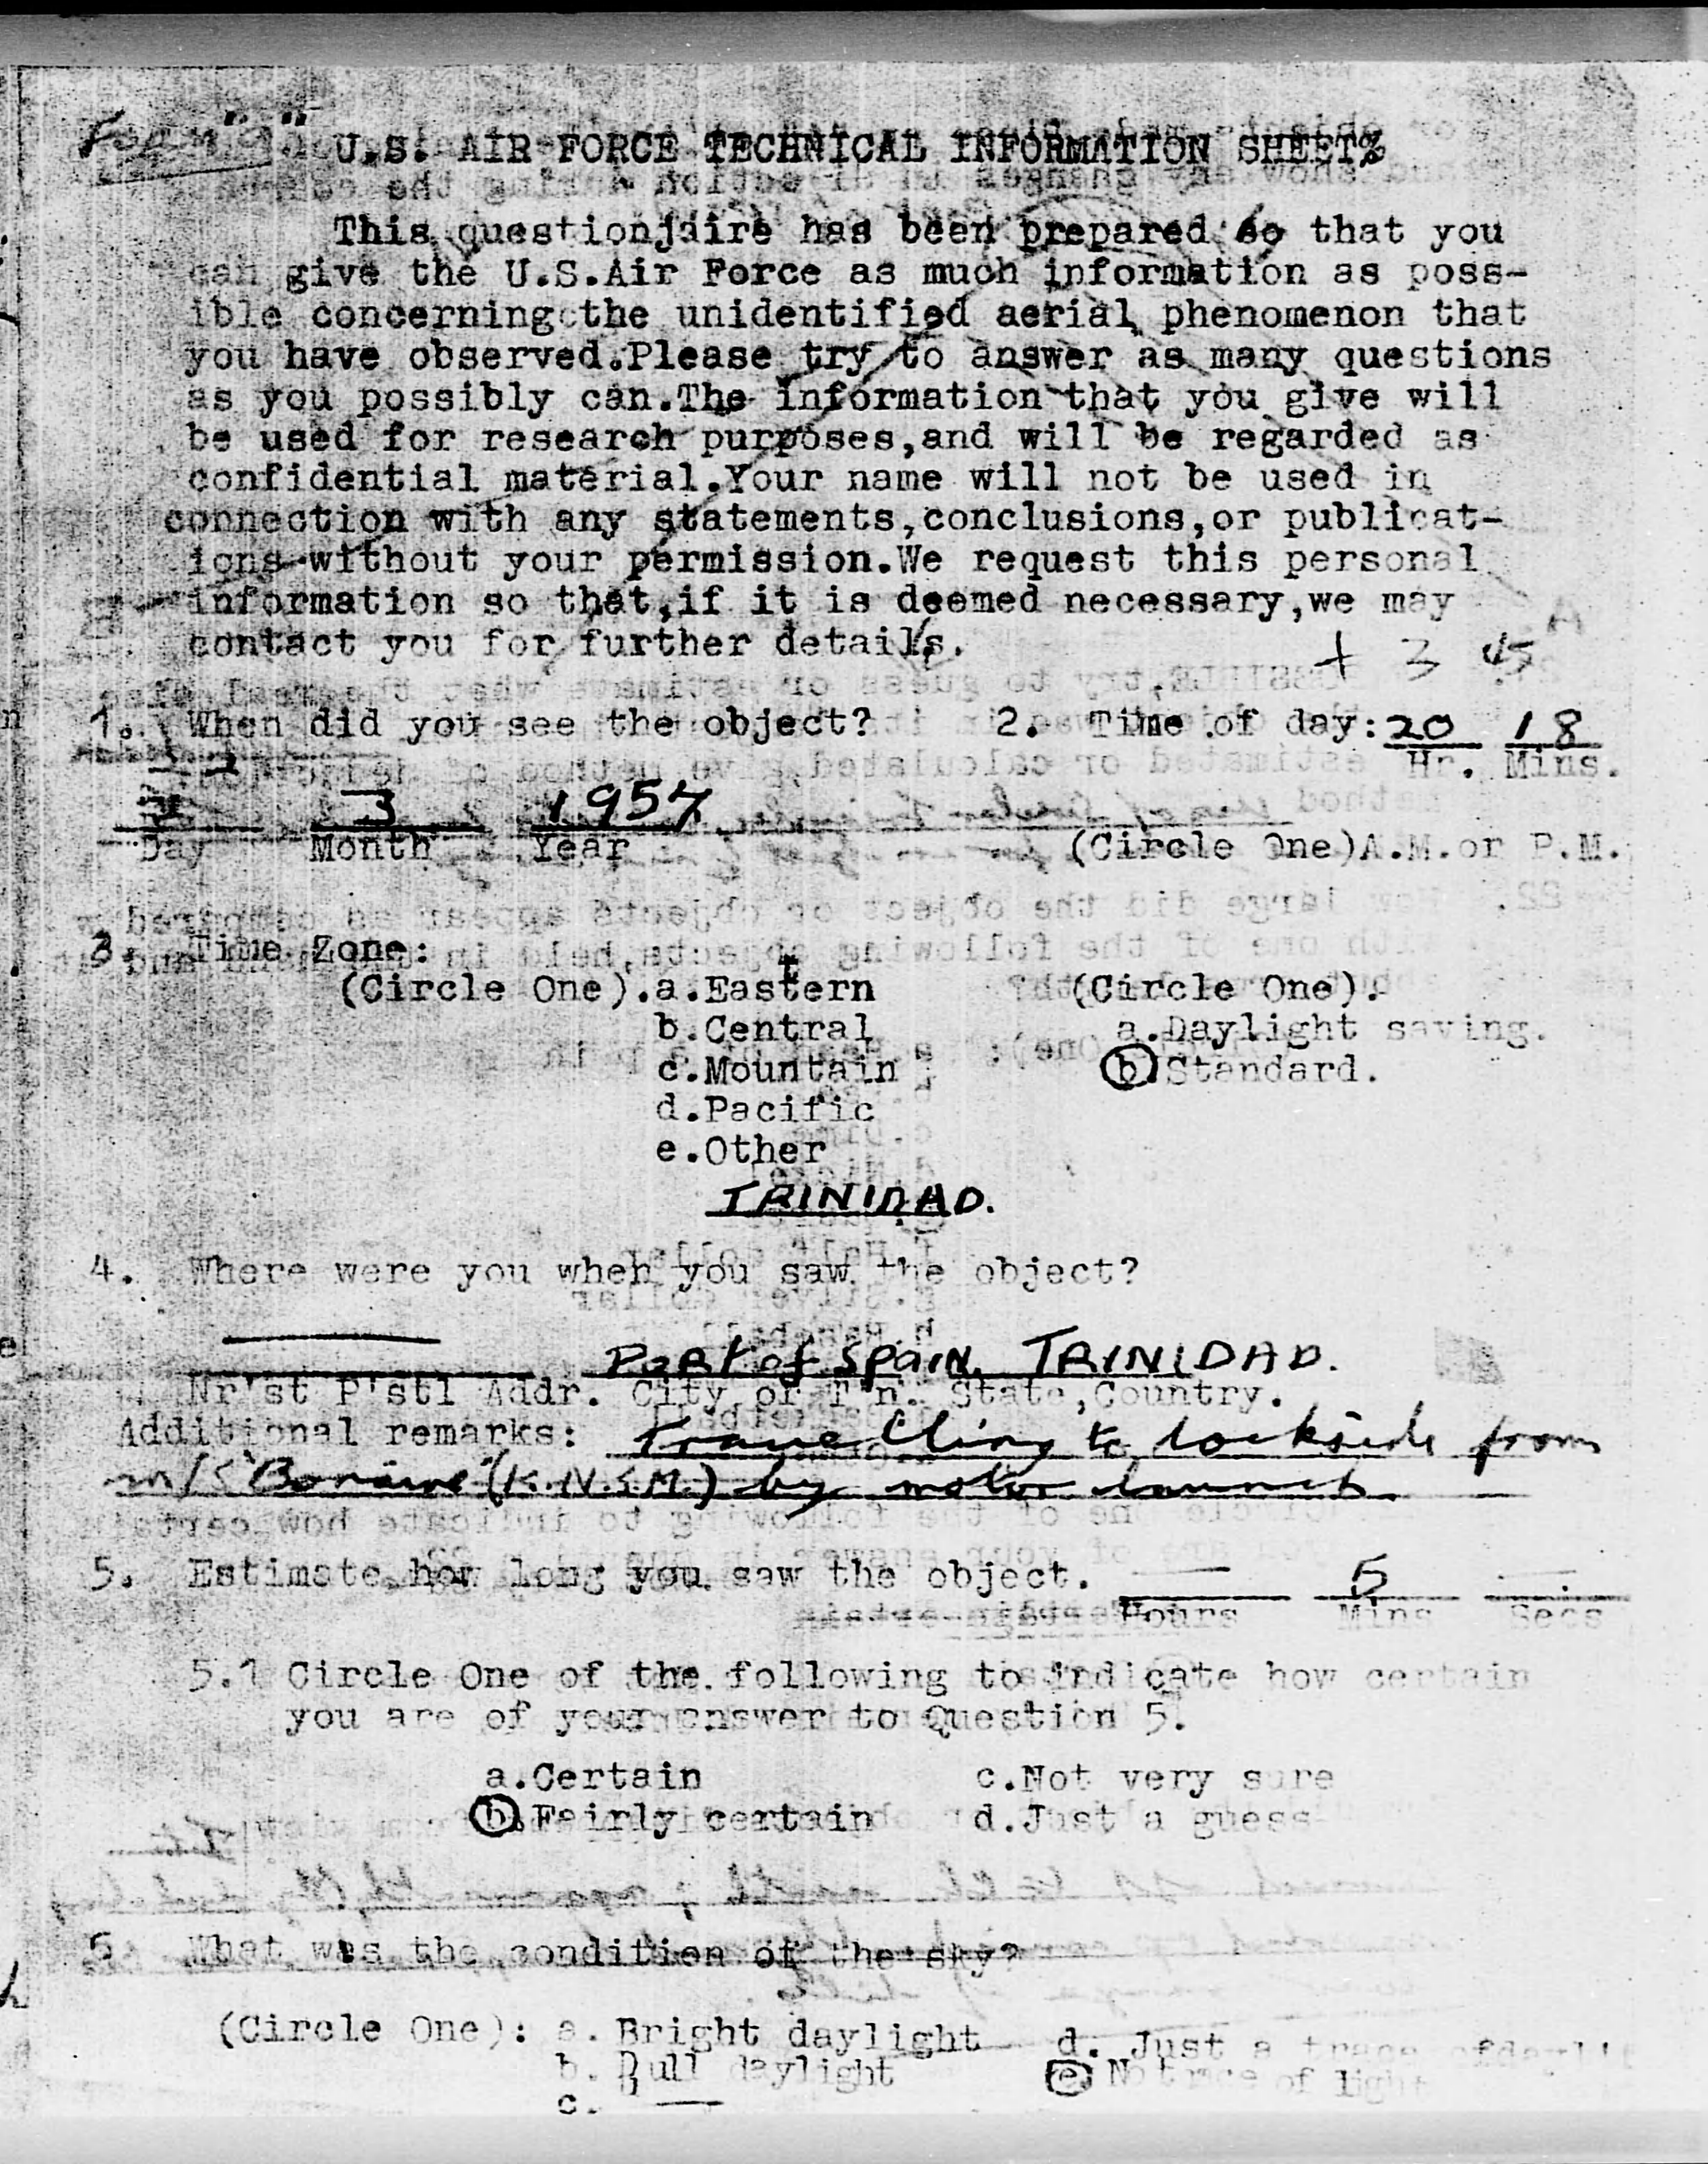 Form "a" U.S. AIR FORCE TECHNICAL INFORMATION SHEET%
This questionjaire has been prepared so that you
can give the U.S.Air Force as much information as poss-
ible concerning the unidentified aerial phenomenon that
you have observed.Please try to answer as many questions
as you possibly can.The information that you give will
be used for research purposes,and will be regarded as
confidential material.Your name will not be used in
connection with any statements,conclusions,or publicat-
ions without your permission.We request this personal
information so that,if it is deemed necessary,we may
contact you for further details.
+ 3 45
1. When did you see the object? 2. Time of day: 20 18
Hr. Mins.
3 1957
Day Month Year (Circle One)A.M.or P.M.
3. Time Zone:
(Circle One).a.Eastern (Circle One).
b.Central a.Daylight saving.
c.Mountain b.Standard.
d.Pacific
e.Other
TRINIDAD.
4. Where were you when you saw the object?
Port of Spain, TRINIDAD.
Nr'st P'stl Addr. City or T'n. State,Country.
Additional remarks: Travelling to dockside from
m/s "Bonaire" (K.N.S.M.) by motor launch.
5. Estimate how long you saw the object. — 5 —
Hours Mins Secs
5.1 Circle One of the following to indicate how certain
you are of your answer to Question 5.
a.Certain c.Not very sure
b.Fairly certain d.Just a guess
6 What was the condition of the sky?
(Circle One): a. Bright daylight d. Just a trace of dayli
b. Dull daylight e. No trace of light
c. —